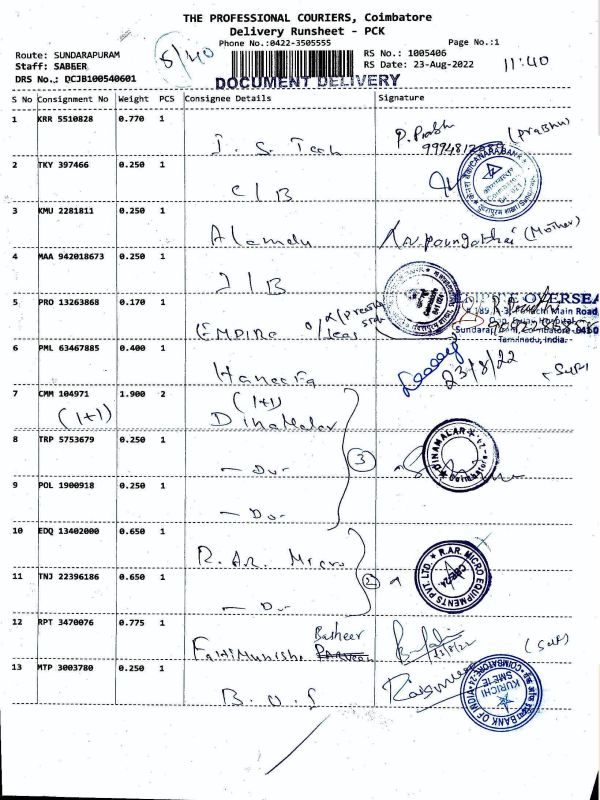 THE PROFESSIONAL COURIERS, Coimbatore
Delivery Runsheet - PCK
Phone No.:0422-3505555 Page No.:1
Route: SUNDARAPURAM RS No.: 1005406
Staff: SABEER RS Date: 23-Aug-2022
DRS No.: DCJB100540601
5/40
11:40
DOCUMENT DELIVERY
S No Consignment No Weight PCS Consignee Details Signature
1 KRR 5510828 0.770 1
P. Prabh (Prabhu)
2 TKY 397466 0.250 1
C I B
CANARA BANK
3 KMU 2281811 0.250 1
Alamelu (Mother)
4 MAA 942018673 0.250 1
I I B
5 PRO 13263868 0.170 1
EMPIRE O/seas
EMPIRE OVERSEA
Main Road,
Tamilnadu, India.
6 PML 63467885 0.400 1
Haneefa
23/8/22
7 CMM 104971 1.900 2
(1+1) (1+1)
Dinamalar
8 TRP 5753679 0.250 1
- Do - 3
DINAMALAR
Coimbatore
9 POL 1900918 0.250 1
- Do -
10 EDQ 13402000 0.650 1
R. AR. Micro
11 TNJ 22396186 0.650 1
- Do - 2
R.AR. MICRO EQUIPMENTS PVT. LTD.
12 RPT 3470076 0.775 1
Basheer
Fathimunisha
13 MTP 3003780 0.250 1
B. O. I
BANK OF INDIA
KURICHI
COIMBATORE